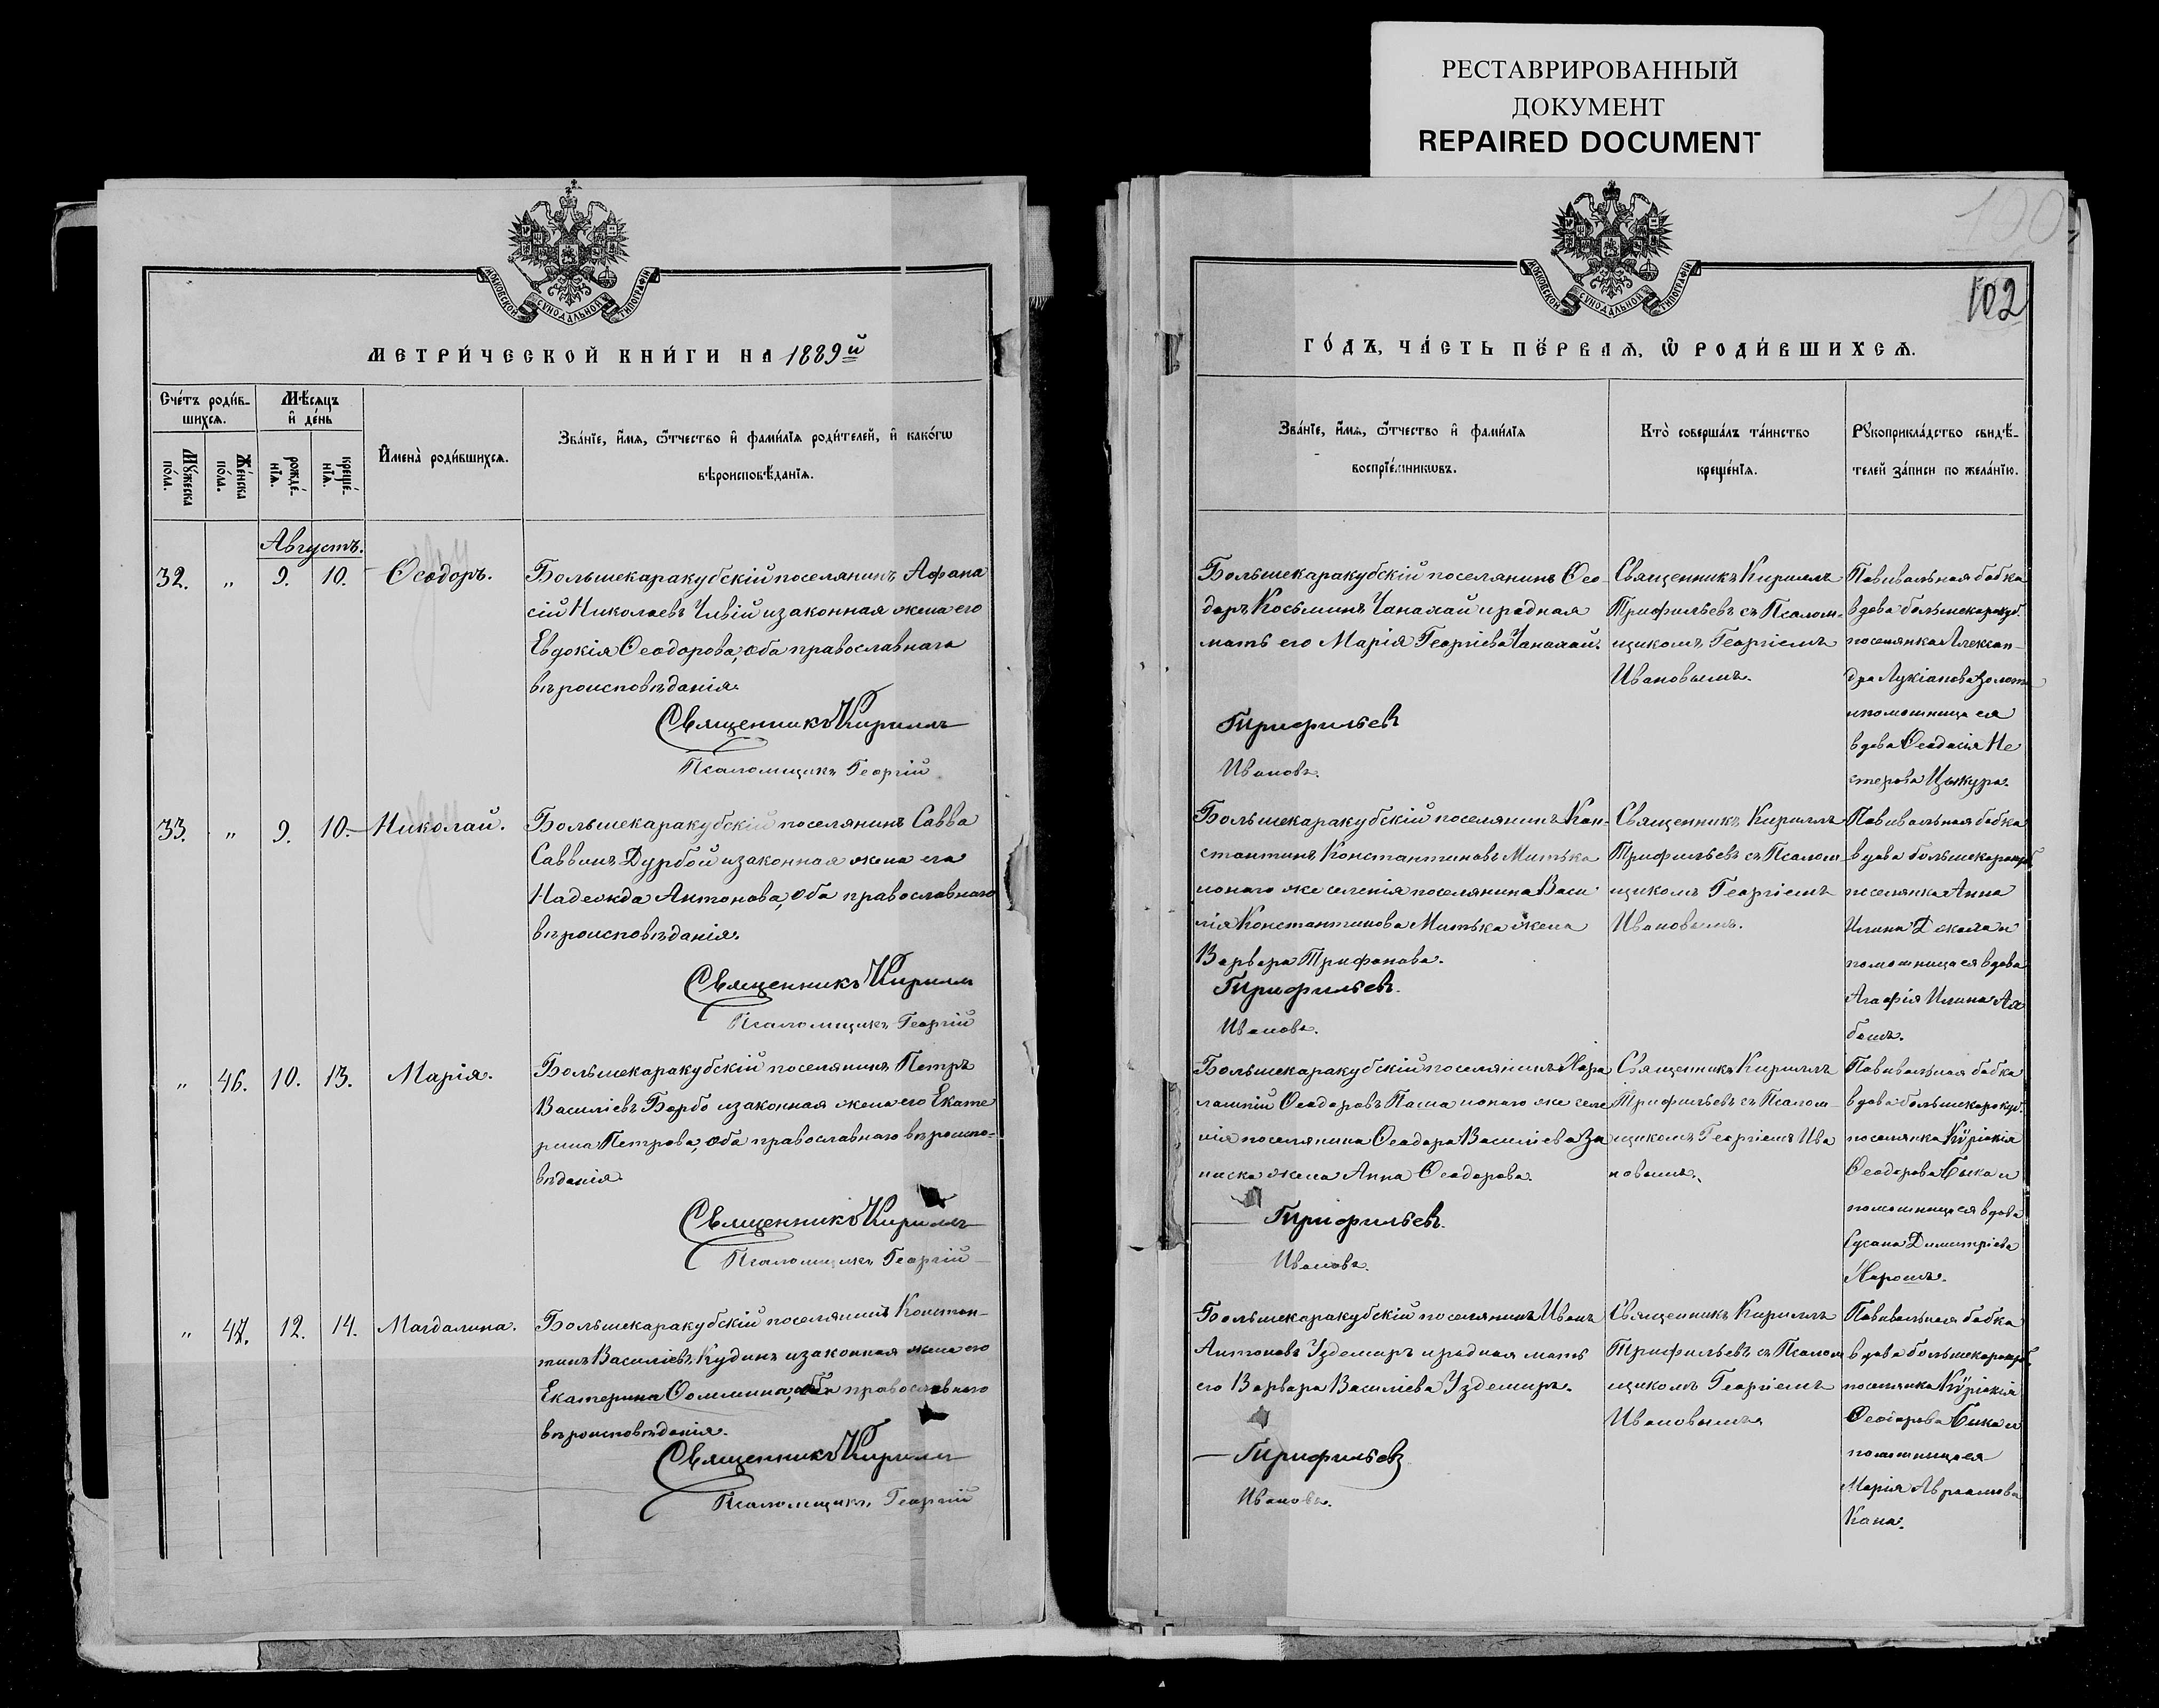 РЕСТАВРИРОВАННЫЙ
ДОКУМЕНТ
REPAIRED DOCUMENT
МОСКОВСКОЙ СУНОДАЛЬНОЙ ТИПОГРАФІИ
МЕТРИ́ЧЕСКОЙ КНИ́ГИ НА 1889й
Сче́тъ роди́в-
шихсѧ.
Мѣ́сѧцъ
и҆ де́нь
Мꙋ́жеска
по́ла.
Же́нска
по́ла.
рожде́-
нїѧ.
креще́-
нїѧ.
И҆мена̀ роди́вшихсѧ.
Зва́нїе, и҆́мѧ, ѻ҆́тчество и҆ фами́лїѧ роди́телей, и҆ како́гѡ
вѣроисповѣ́данїѧ.
Августъ.
32. „ 9. 10. Ѳеодоръ.
Большекаракубскій поселянинъ Афана
сій Николаевъ Чивій и законная жена его
Евдокія Ѳеодорова, оба православнаго
вѣроисповѣданія.
Священникъ Кириллъ
Псаломщикъ Георгій
33. „ 9. 10. Николай.
Большекаракубскій поселянинъ Савва
Саввинъ Дурбой и законная жена его
Надежда Антонова, оба православнаго
вѣроисповѣданія.
Священникъ Кириллъ
Псаломщикъ Георгій
„ 46. 10. 13. Марія.
Большекаракубскій поселянинъ Петръ
Василіевъ Барбо и законная жена его Екате
рина Петрова, оба православнаго вѣроиспо-
вѣданія.
Священникъ Кириллъ
Псаломщикъ Георгій
„ 47. 12. 14. Магдалина.
Большекаракубскій поселянинъ Констан-
тинъ Василіевъ Кудинъ и законная жена его
Екатерина Ѳомина, оба православнаго
вѣроисповѣданія.
Священникъ Кириллъ
Псаломщикъ Георгій
100
102
МОСКОВСКОЙ СУНОДАЛЬНОЙ ТИПОГРАФІИ
ГО́ДЪ, ЧА́СТЬ ПЕ́РВАѦ, Ѡ҆ РОДИ́ВШИХСѦ.
Зва́нїе, и҆́мѧ, ѻ҆́тчество и҆ фами́лїѧ
воспрїе́мникѡвъ.
Кто̀ соверша́лъ та́инство
креще́нїѧ.
Рꙋкоприкла́дство свидѣ́-
телей за́писи по жела́нїю.
Большекаракубскій поселянинъ Ѳео-
доръ Косьминъ Чанахай и родная
мать его Марія Георгіева Чанахай.
Трифильевъ
Ивановъ.
Священникъ Кириллъ
Трифильевъ съ Псалом-
щикомъ Георгіемъ
Ивановымъ.
Повивальная бабка
вдова большекаракуб.
поселянка Алексан-
дра Лукіанова
и помощница ея
вдова Ѳеодосія Не
стерова Цынкура.
Большекаракубскій поселянинъ Кон-
стантинъ Константиновъ Митька
и онаго же селенія поселянина Васи-
лія Константинова Митька жена
Варвара Трифонова.
Трифильевъ.
Ивановъ.
Священникъ Кириллъ
Трифильевъ съ Псалом
щикомъ Георгіемъ
Ивановымъ.
Повивальная бабка
вдова большекаракуб
поселянка Анна
Ильина и
помощница ея вдова
Агафія Ильина
Большекаракубскій поселянинъ Хара
лампій Ѳеодоровъ Паша и онаго же селе
нія поселянина Ѳеодора Василіева За
писка жена Анна Ѳеодорова.
Трифильевъ.
Ивановъ.
Священникъ Кириллъ
Трифильевъ съ Псалом-
щикомъ Георгіемъ Ива
новымъ.
Повивальная бабка
вдова большекаракуб.
поселянка Кѵріакія
Ѳеодорова Быка и
помощница ея вдова
Сусана Димитріева
Большекаракубскій поселянинъ Иванъ
Антоновъ Уздемиръ и родная мать
его Варвара Василіева Уздемиръ.
Трифильевъ
Ивановъ.
Священникъ Кириллъ
Трифильевъ съ Псалом
щикомъ Георгіемъ
Ивановымъ
Повивальная бабка
вдова большекаракуб
поселянка Кѵріакія
Ѳеодорова Быка и
помощница ея
Марія Авраамова
Кана.